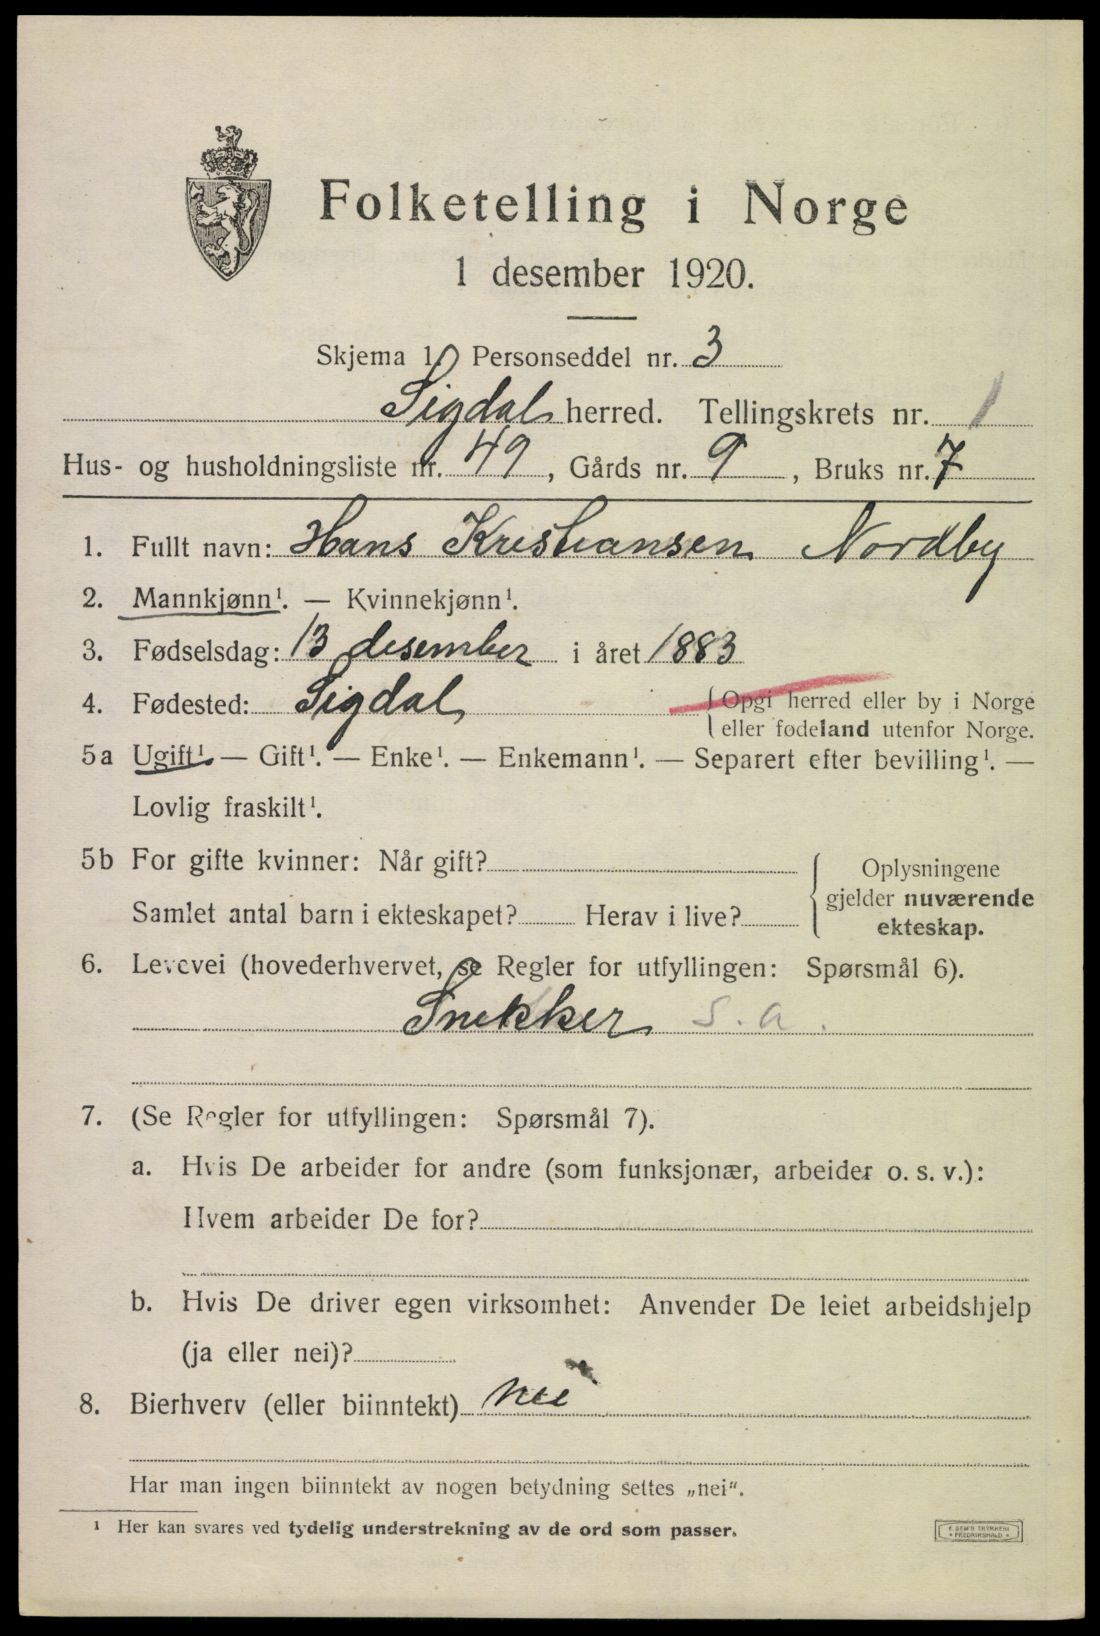 Folketelling i Norge
1 desember 1920.
Skjema 1. Personseddel nr. 3
Sigdal herred. Tellingskrets nr. 1
Hus- og husholdningsliste nr. 49, Gårds nr. 9, Bruks nr. 7
1. Fullt navn: Hans Kristiansen Nordby
2. Mannkjønn¹. — Kvinnekjønn¹.
3. Fødselsdag: 13 desember i året 1883
4. Fødested: Sigdal { Opgi herred eller by i Norge
eller fødeland utenfor Norge.
5a Ugift¹. — Gift¹. — Enke¹. — Enkemann¹. — Separert efter bevilling¹. —
Lovlig fraskilt¹.
5b For gifte kvinner: Når gift?
Samlet antal barn i ekteskapet? Herav i live?
Oplysningene
gjelder nuværende
ekteskap.
6. Levevei (hovederhvervet, se Regler for utfyllingen: Spørsmål 6).
Snekker s. a.
7. (Se Regler for utfyllingen: Spørsmål 7).
a. Hvis De arbeider for andre (som funksjonær, arbeider o. s. v.):
Hvem arbeider De for?
b. Hvis De driver egen virksomhet: Anvender De leiet arbeidshjelp
(ja eller nei)?
8. Bierhverv (eller biinntekt) nei
Har man ingen biinntekt av nogen betydning settes „nei“.
¹ Her kan svares ved tydelig understrekning av de ord som passer.
FREDRIKSHALD